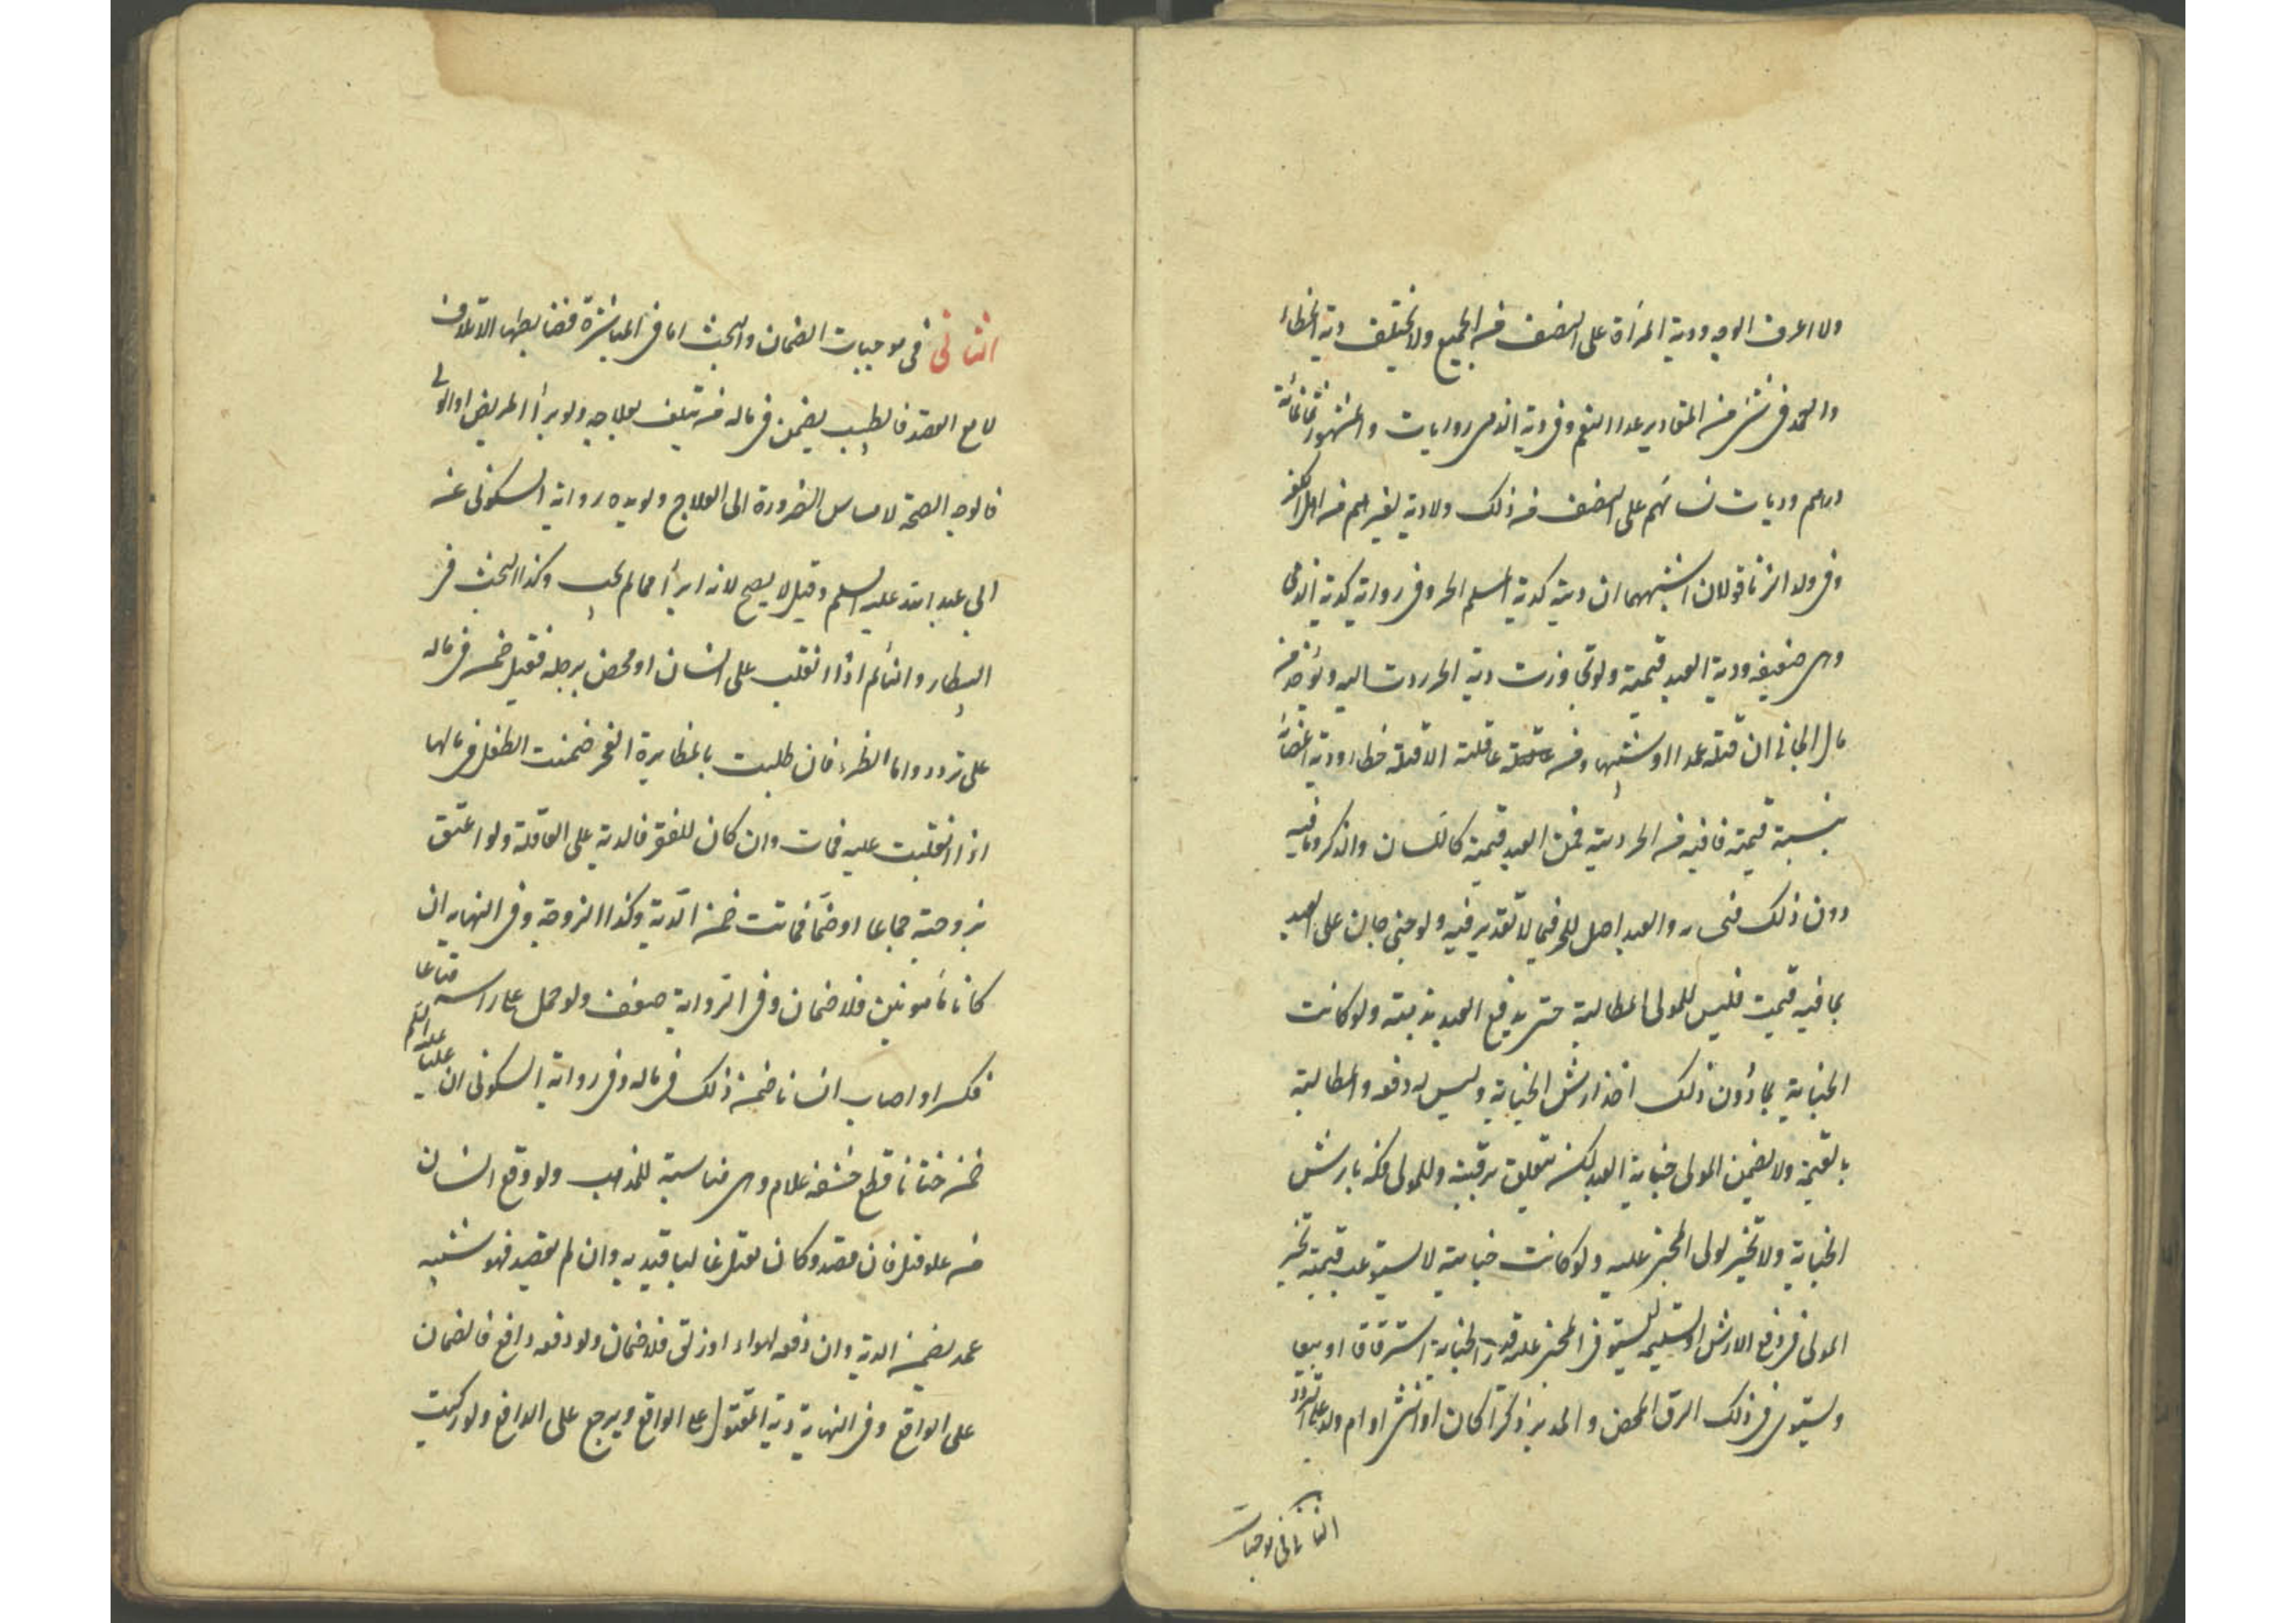 ولا اعرف الوجه ودية المرأة على النصف من الجميع ولا تختلف دية الخطاء
والعمد في شئ من المقادير عدا النفس وفي دية الذمي روايات والمشهور ثمانمائة
درهم وديات نسائهم على النصف من ذلك ولا دية لغيرهم من اهل الكفر
وفي ولد الزنا قولان اشبههما ان ديته كدية المسلم الحر وفي رواية كدية الذمي
وهي ضعيفه ودية العبد قيمته ولو تجاوزت دية الحر ردت اليه وتؤخذ من
مال الجاني ان قتله عمدا او شبيها ومن عاقلته ان قتله خطاء ودية اعضائه
بنسبة قيمته فما فيه من الحر ديته فمن العبد قيمته كاللسان والذكر وما فيه
دون ذلك فبحسابه والعبد اصل للحر فيما لا تقدير فيه ولو جنى جان على العبد
بما فيه قيمته فليس للمولى المطالبة حتى يدفع العبد برمته ولو كانت
الجناية بما دون ذلك اخذ ارش الجناية وليس له دفعه والمطالبة
بالقيمة ولا يضمن المولى جناية العبد لكن تتعلق برقبته وللمولى فكه بارش
الجناية ولا تخير لولى المجنى عليه ولو كانت جنايته لا تستوعب قيمته تخير
المولى في دفع الارش او تسليمه ليستوفي المجنى عليه قدر الجناية استرقاقا او بيعا
ويستوى في ذلك الرق المحض والمدبر ذكرا كان او انثى او ام ولد على التردد
الثاني في موجبات
الثاني في موجبات الضمان والبحث اما في المباشرة فضابطها الاتلاف
لا مع القصد فالطبيب يضمن في ماله من يتلف بعلاجه ولو برأ المريض او الولى
فالوجه الصحة لامساس الضرورة الى العلاج ويؤيده رواية السكوني عن
ابي عبد الله عليه السلم وقيل لا يصح لانه ابرأ مما لم يجب وكذا البحث في
البيطار والنائم اذا انقلب على انسان او فحص برجله فقيل ضمن في ماله
على تردد واما الظئر فان طلبت بالمظايرة الفخر ضمنت الطفل في مالها
اذا انقلبت عليه فمات وان كان للفقر فالدية على العاقلة ولو اعنق
بزوجته جماعا او ضما فماتت ضمن الدية وكذا الزوجة وفي النهاية ان
كانا مأمونين فلا ضمان وفي الرواية ضعف ولو حمل على راسه متاعا
فكسر او اصاب انسانا ضمن ذلك في ماله وفي رواية السكوني ان عليا عليه السلم
ضمن ختانا قطع حشفة غلام وهي مناسبة للمذهب ولو وقع انسان
من علو فقتل فان قصد وكان يقتل غالبا قيد به وان لم يقصد فهو شبيه
عمد يضمن الدية وان دفعه الهواء او زلق فلا ضمان ولو دفعه دافع فالضمان
على الدافع وفي النهاية دية المقتول على الواقع ويرجع على الدافع ولو ركبت